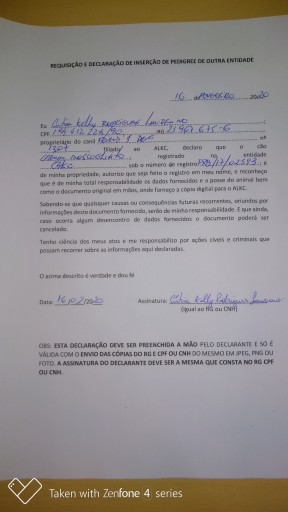 REQUISIÇÃO E DECLARAÇÃO DE INSERÇÃO DE PEDIGREE DE OUTRA ENTIDADE
16 de FEVEREIRO 2020
Eu Kelly
CPF RG
proprietario do canil nº
filiado/ ao ALKC, declaro que o cão
registrado na entidade
sob o número de registro e
de minha propriedade, autorizo que seja feito o registro em meu nome, e reconheço
que é de minha total responsabilidade os dados fornecidos e a posse do animal bem
como o documento original em mãos, sendo forneço a cópia digital para o ALKC.
Sabendo-se que quaisquer causas ou consequências futuras recorrentes, oriundos por
informações deste documento fornecido, serão de minha responsabilidade. E que ainda,
caso ocorra algum desencontro de dados fornecidos o documento poderá ser
cancelado.
Tenho ciência dos meus atos e me responsabilizo por ações cíveis e criminais que
possam recorrer sobre as informações aqui declaradas.
O acima descrito é verdade e dou fé
Data: 16/02/2020 Assinatura: Kelly Rodrigues
(igual ao RG ou CNH)
OBS: ESTA DECLARAÇÃO DEVE SER PREENCHIDA A MÃO PELO DECLARANTE E SÓ É
VÁLIDA COM O ENVIO DAS CÓPIAS DO RG E CPF OU CNH DO MESMO EM JPEG, PNG OU
FOTO. A ASSINATURA DO DECLARANTE DEVE SER A MESMA QUE CONSTA NO RG CPF
OU CNH.
Taken with Zenfone 4 series